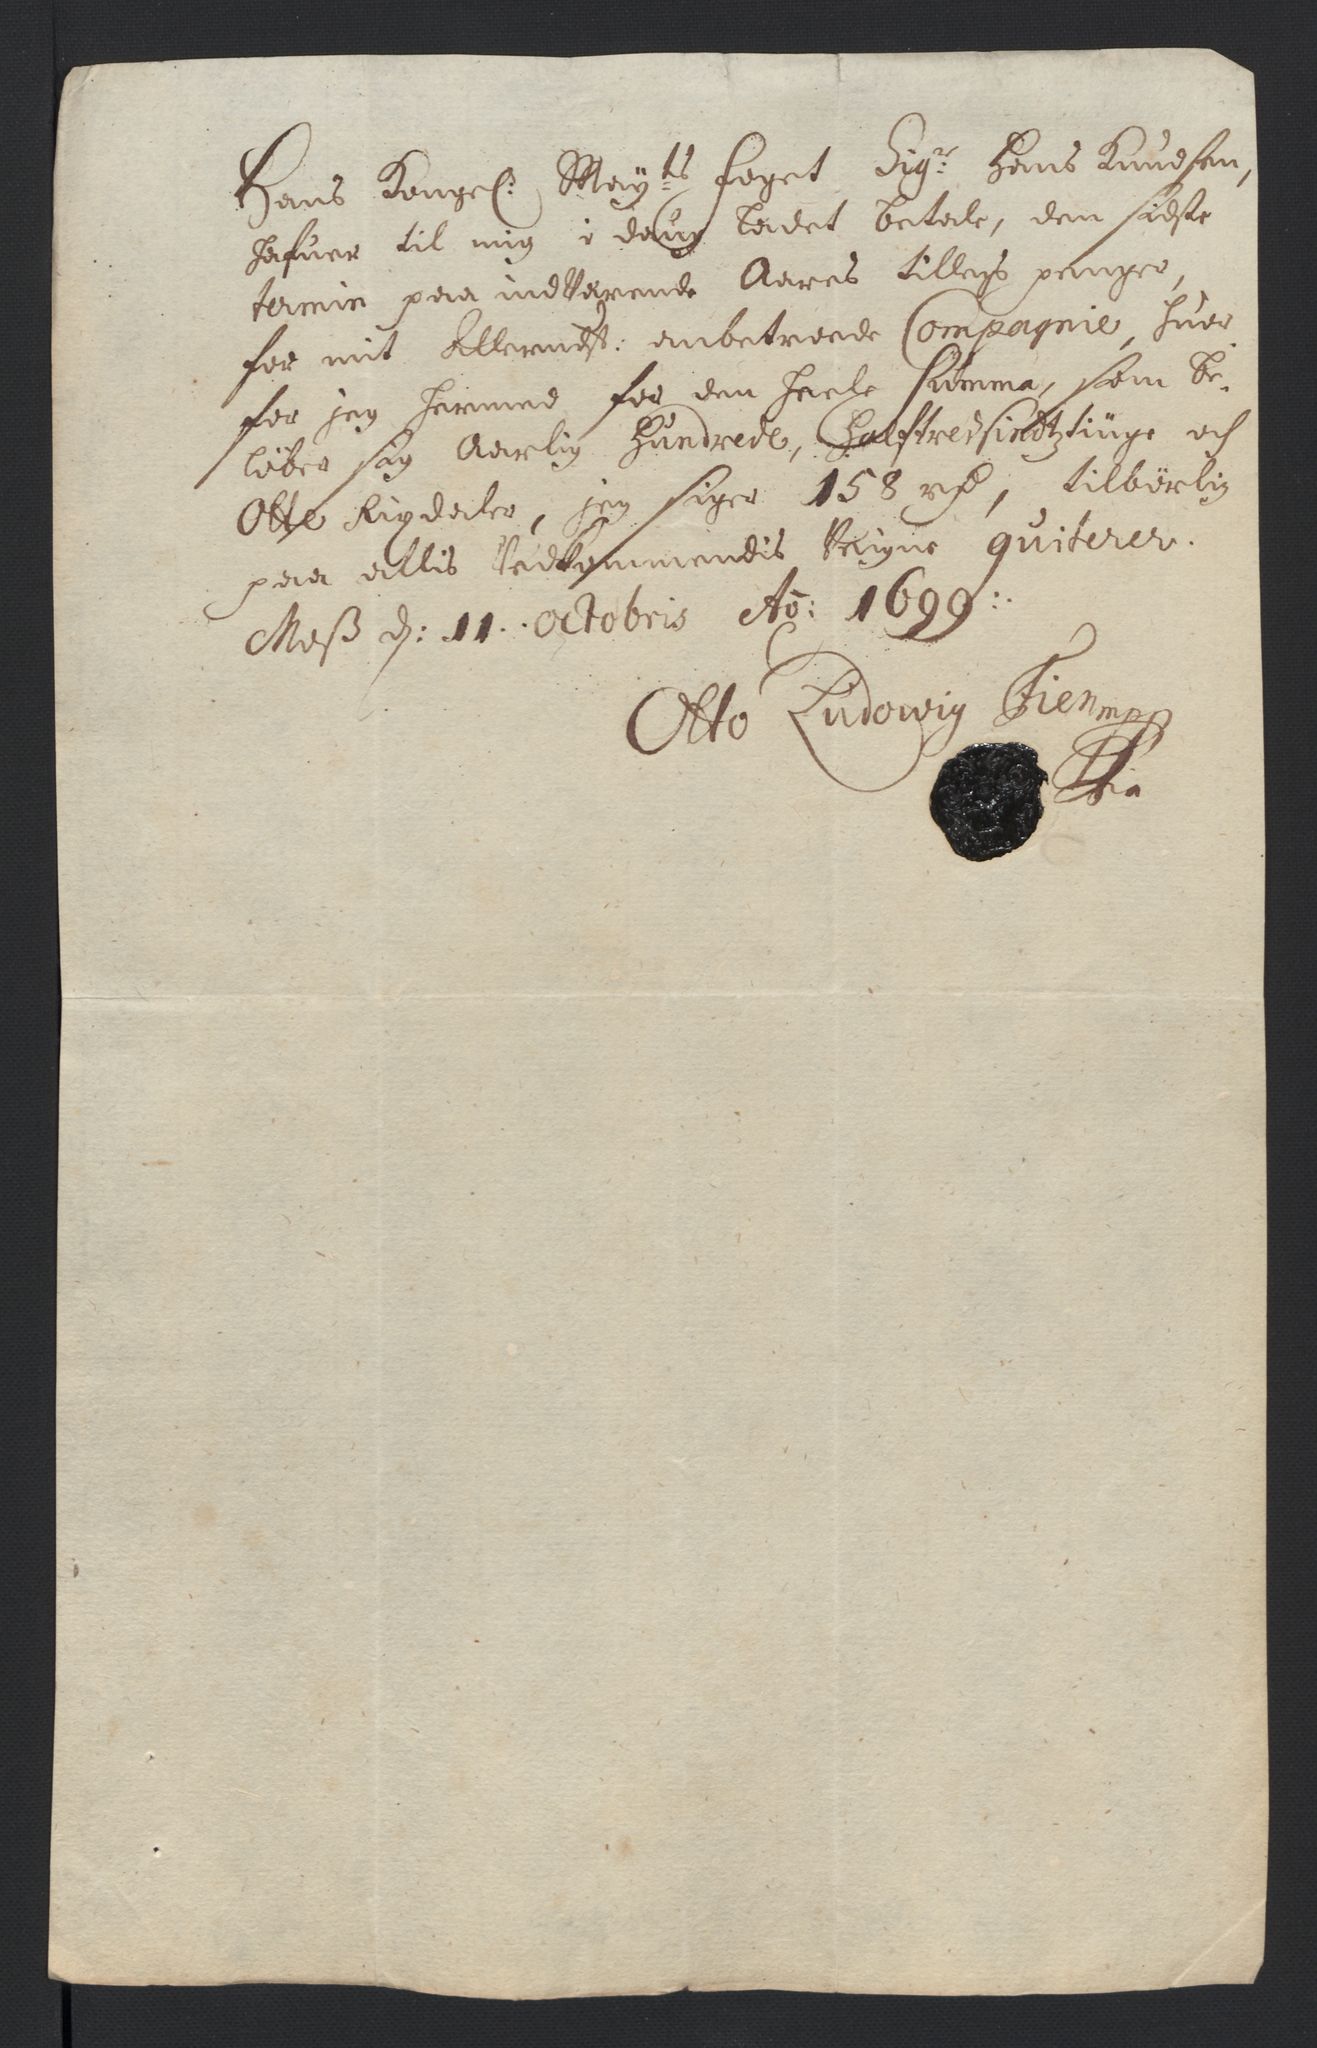 Hans Kongel: May:ts foget Sigr: Hans Knudsen,
hafuer til mig i daug ladet betale, den sidste
termin paa indVærende Aares tillegs penger,
for mit Allerndst: anbetroede Compagnie, huor
for jeg hermed for den heele Summa, som be-
löber sig Aarlig Hundrede, Halftredsindtztiuge och
Otte Rigdaler, jeg siger 158 rd, tilbörlig
paa allis Vedkommendis Veigne quiterer.
Moß d: 11. octobris Ao: 1699:.
Otto Ludowig mpp